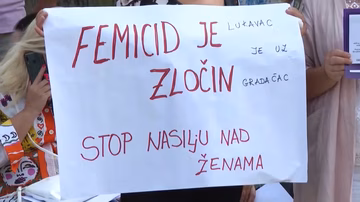 FEMICID JE
ZLOČIN
LUKAVAC
JE UZ
GRADAČAC
STOP NASILJU NAD
ŽENAMA